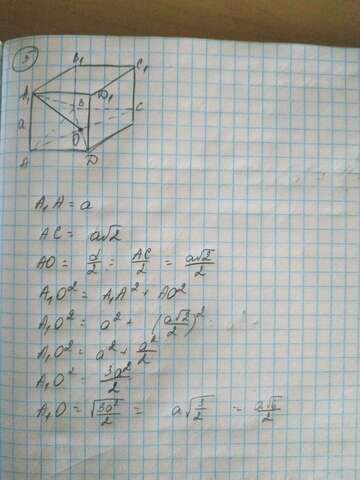 5
B₁ C₁
A₁ D₁
B C
a O
A D
A₁A = a
AC = a√2
AO = d/2 = AC/2 = a√2/2
A₁O² = A₁A² + AO²
A₁O² = a² + (a√2/2)²
A₁O² = a² + a²/2
A₁O² = 3a²/2
A₁O = √(3a²/2) = a√(3/2) = a√6/2